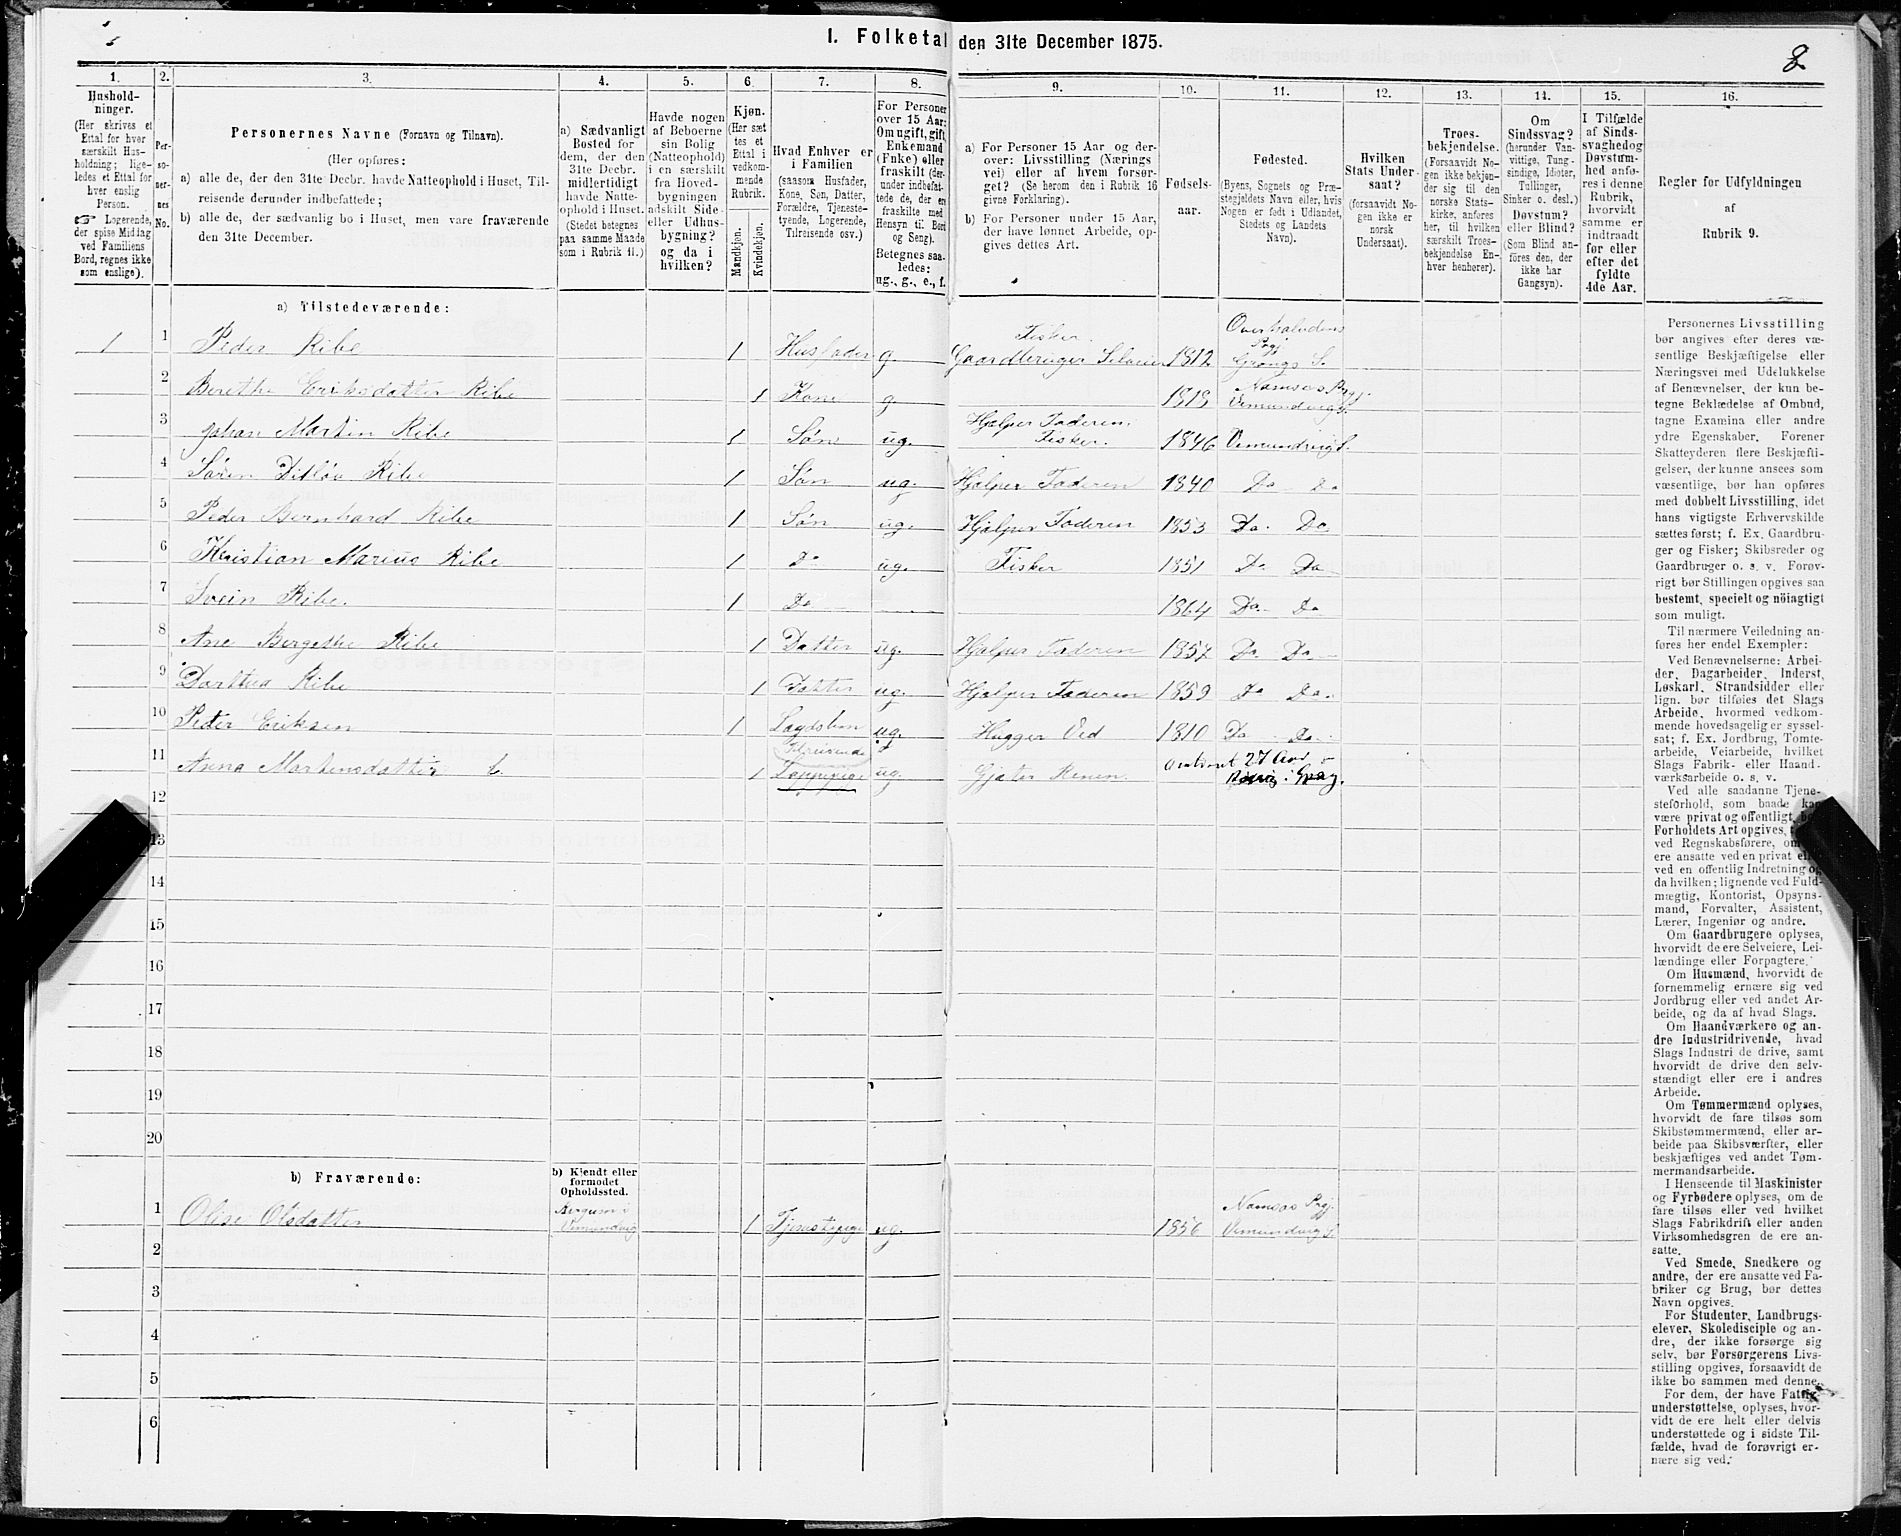 I. Folketal den 31te December 1875.
8
1. 2. 3. 4. 5. 6. 7. 8. 9. 10. 11. 12. 13. 14. 15. 16.
Hushold-
ninger.
(Her skrives et
Ettal for hver
særskilt Hus-
holdning; lige-
ledes et Ettal for
hver enslig
Person.
☞ Logerende,
der spise Middag
ved Familiens
Bord, regnes ikke
som enslige).
Per-
so-
ner-
nes
No.
Personernes Navne (Fornavn og Tilnavn).
(Her opføres:
a) alle de, der den 31te Decbr. havde Natteophold i Huset, Til-
reisende derunder indbefattede;
b) alle de, der sædvanlig bo i Huset, men vare fraværende
den 31te December.
a) Sædvanligt
Bosted for
dem, der den
31te Decbr.
midlertidigt
havde Natte-
ophold i Huset.
(Stedet betegnes
paa samme Maade
som i Rubrik 11.)
Havde nogen
af Beboerne
sin Bolig
(Natteophold)
i en særskilt
fra Hoved-
bygningen
adskilt Side-
eller Udhus-
bygning?
og da i
hvilken?
Kjøn.
(Her sæt-
tes et
Ettal i
vedkom-
mende
Rubrik.
Mandkjøn.
Kvindekjøn.
Hvad Enhver er
i Familien
(saasom Husfader,
Kone, Søn, Datter,
Forældre, Tjeneste-
tyende, Logerende,
Tilreisende osv.)
For Personer
over 15 Aar:
Om ugift, gift,
Enkemand
(Enke) eller
fraskilt (der-
under indbefat-
tede de, der en
fraskilte med
Hensyn til Bord
og Seng).
Betegnes saa-
ledes:
ug., g., e., f.
a) For Personer 15 Aar og der-
over: Livsstilling (Nærings
vei) eller af hvem forsør-
get? (Se herom den i Rubrik 16
givne Forklaring).
b) For Personer under 15 Aar,
der have lønnet Arbeide, op-
gives dettes Art.
Fødsels-
aar.
Fødested.
(Byens, Sognets og Præ-
stegjeldets Navn eller, hvis
Nogen er født i Udlandet,
Stedets og Landets
Navn).
Hvilken
Stats Under-
saat?
(forsaavidt No-
gen ikke er
norsk
Undersaat).
Troes-
bekjendelse.
(Forsaavidt No-
gen ikke bekjen-
der sig til den
norske Stats-
kirke, anføres
her, til hvilken
særskilt Troes-
bekjendelse En-
hver henhører).
Om
Sindssvag?
(herunder Van-
vittige, Tung-
sindige, Idioter,
Tullinger,
Sinker o. desl.)
Døvstum?
eller Blind?
(Som Blind an-
føres den, der
ikke har
Gangsyn).
I Tilfælde
af Sinds-
svaghedog
Døvstum-
hed anfø-
res i denne
Rubrik,
hvorvidt
samme er
indtraadt
før eller
efter det
fyldte
4de Aar.
Regler for Udfyldningen
af
Rubrik 9.
a) Tilstedeværende:
1 1 Peder Ribe 1 Husfader g. Fisker Gaardbruger Selveier 1812 Overhalvdens Pgj Grongs S.
2 Berethe Eriksdatter Ribe 1 Kone g. 1818 Namsos Pgj. Vemundvig S.
3 Johan Martin Ribe 1 Søn ug. Hjælper Faderen. Fisker. 1846 Vemundvig S.
4 Søren Ditløv Ribe 1 Søn ug. Hjælper Faderen 1840 Do Do
5 Peder Bernhard Ribe 1 Søn ug. Hjælper Faderen 1853 Do. Do
6 Kristian Marius Ribe 1 Do ug. Fisker 1851 Do Do
7 Svein Ribe. 1 Do 1864 Do Do
8 Ane Bergethe Ribe 1 Datter ug. Hjælper Faderen 1857 Do Do
9 Dorthea Ribe 1 Datter ug. Hjælper Faderen 1859 Do Do.
10 Peder Eriksen 1 Lægdslem ug. Hugger Ved 1810 Do Do.
11 Anna Martensdatter 1 Tilreisende Lappepige ug. Gjæter Renen. omtrent 27 Aar
12
13
14
15
16
17
18
19
20
b) Fraværende:
b) Kjendt eller
formodet
Opholdssted.
1 Oline Olsdatter Vemundvig 1 Tjenestepige ug. 1856 Namsos Pgj. Vemundvig S.
2
3
4
5
6
Personernes Livsstilling
bør angives efter deres væ-
sentlige Beskjæftigelse eller
Næringsvei med Udelukkelse
af Benævnelser, der kun be-
tegne Beklædelse af Ombud,
tagne Examina eller andre
ydre Egenskaber. Forener
Skatteyderen flere Beskjæfti-
gelser, der kunne ansees som
væsentlige, bør han opføres
med dobbelt Livsstilling, idet
hans vigtigste Erhvervskilde
sættes først; f. Ex. Gaardbru-
ger og Fisker; Skibsreder og
Gaardbruger o. s. v. Forøv-
rigt bør Stillingen opgives saa
bestemt, specielt og nöiagtigt
som muligt.
Til nærmere Veiledning an-
føres her endel Exempler:
Ved Benævnelserne: Arbei-
der, Dagarbeider, Inderst,
Løskarl, Strandsidder eller
lign. bør tilføies det Slags
Arbeide, hvormed vedkom-
mende hovedsagelig er syssel-
sat; f. Ex. Jordbrug, Tomte-
arbeide, Veiarbeide, hvilket
Slags Fabrik- eller Haand-
værksarbeide o. s. v.
Ved alle saadanne Tjene-
steforhold, som baade kan
være privat og offentligt, bør
Forholdets Art opgives,
ved Regnskabsførere, om
ere ansatte ved en privat eller
ved en offentlig Indretning og
da hvilken; lignende ved Fuld-
mægtig, Kontorist, Opsyns-
mand, Forvalter, Assistent,
Lærer, Ingeniør og andre.
Om Gaardbrugere oplyses,
hvorvidt de ere Selveiere, Lei-
lændinge eller Forpagtere.
Om Husmænd, hvorvidt de
fornemmelig ernære sig ved
Jordbrug eller ved andet Ar-
beide, og da af hvad Slags.
Om Haandværkere og an-
dre Industridrivende, hvad
Slags Industri de drive, samt
hvorvidt de drive den selv-
stændigt eller ere i andres
Arbeide.
Om Tømmermænd oplyses,
hvorvidt de fare tilsøs som
Skibstømmermænd, eller ar-
beide paa Skibsværfter, eller
beskjæftiges ved andet Tøm-
mermandsarbeide.
I Henseende til Maskinister
og Fyrbødere oplyses, om de
fare tilsøs eller ved hvilket
Slags Fabrikdrift eller anden
Virksomhedsgren de ere an-
satte.
Ved Smede, Snedkere og
andre, der ere ansatte ved Fa-
briker og Brug, bør dettes
Navn opgives.
For Studenter, Landbrugs-
elever, Skoledisciple og an-
dre, der ikke forsørge sig
selv, bør Forsørgerens Livs-
stilling opgives, forsaavidt de
ikke bo sammen med denne.
For dem, der have Fattig-
understøttelse, oplyses, hvor-
vidt de ere helt eller delvis
understøttede og i sidste Til-
fælde, hvad de forøvrigt er-
nære sig ved.